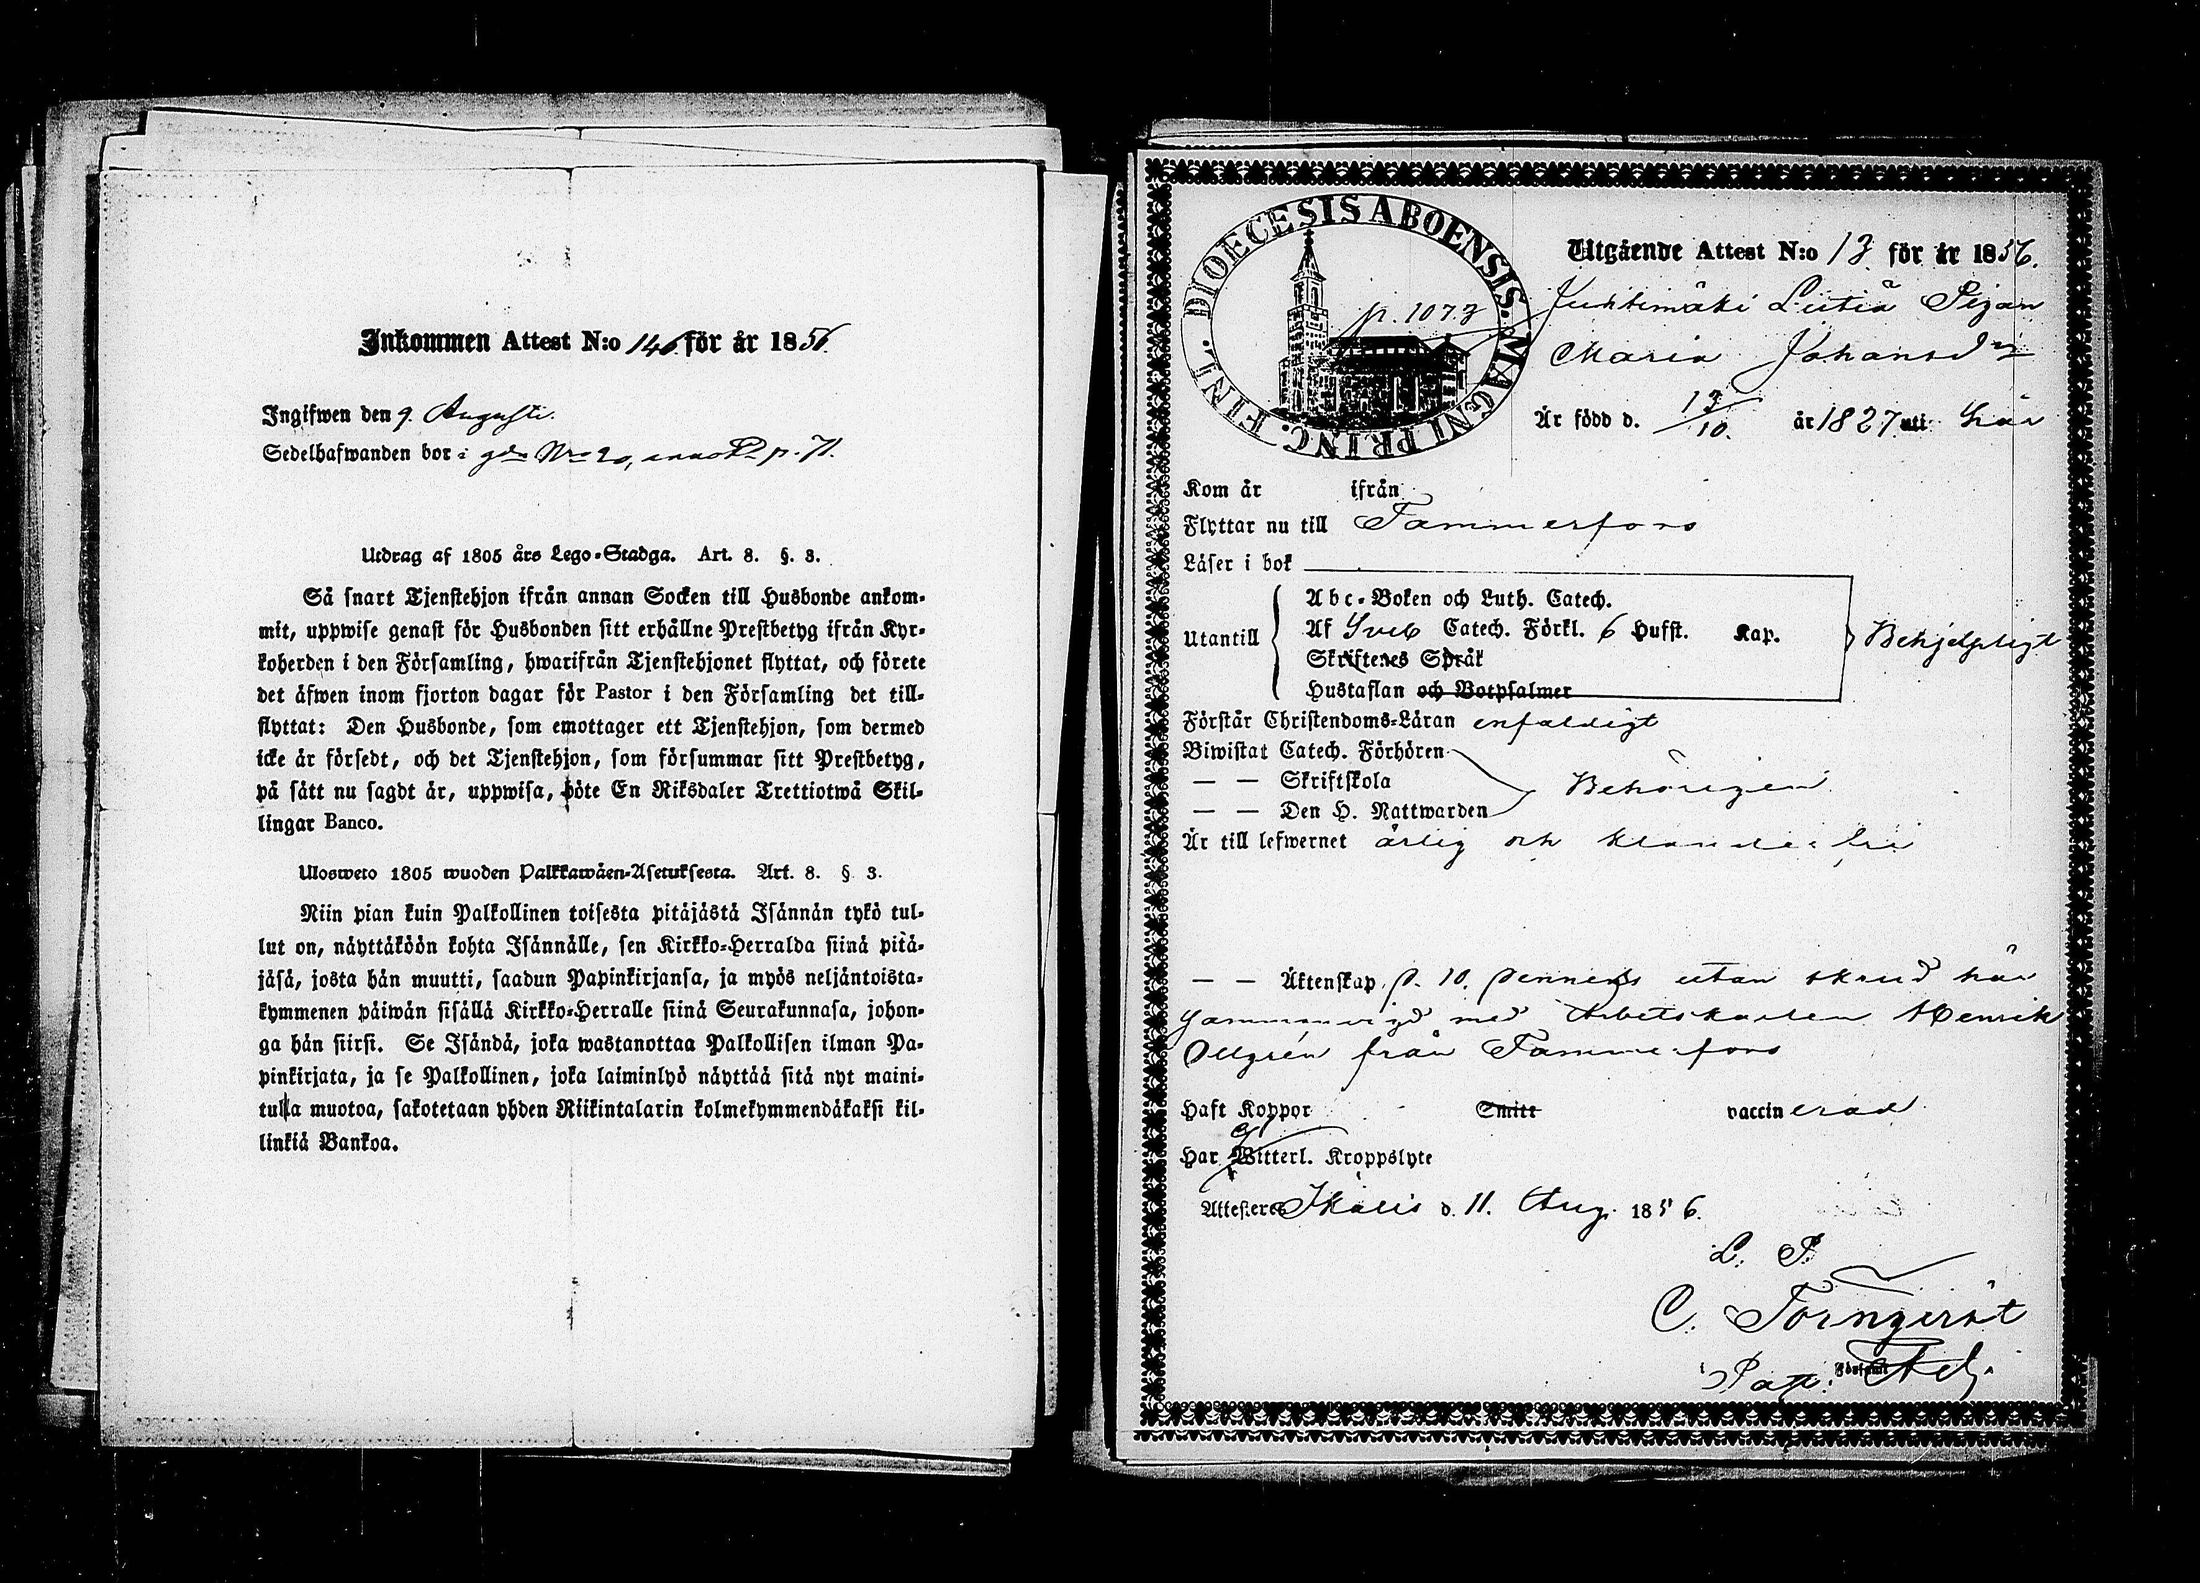 Inkommen Attest N:o 146 för år 1856.
Ingifwen den 9. Augusti.
Sedelhafwanden bor i gdn Nro 20, p. 71.
Utdrag af 1805 års Lego-Stadga. Art. 8. §. 3.
Så snart Tjenstehjon ifrån annan Socken till Husbonde ankom-
mit, uppwise genast för Husbonden sitt erhållne Prestbetyg ifrån Kyr-
koherden i den Församling, hwarifrån Tjenstehjonet flyttat, och förete
det äfwen inom fjorton dagar för Pastor i den Församling det till-
flyttat: Den Husbonde, som emottager ett Tjenstehjon, som dermed
icke är försedt, och det Tjenstehjon, som försummar sitt Prestbetyg,
på sätt nu sagdt är, uppwisa, böte En Riksdaler Trettiotwå Skil-
lingar Banco.
Ulosweto 1805 wuoden Palkkawäen-Asetuksesta. Art. 8. § 3.
Niin pian kuin Palkollinen toisesta pitäjästä Isännän tykö tul-
lut on, näyttäköön kohta Isännälle, sen Kirkko-Herralda siinä pitä-
jäsä, josta hän muutti, saadun Papinkirjansa, ja myös neljäntoista-
kymmenen päiwän sisällä Kirkko-Herralle siinä Seurakunnasa, johon-
ga hän siirsi. Se Isändä, joka wastanottaa Palkollisen ilman Pa-
pinkirjata, ja se Palkollinen, joka laiminlyö näyttää sitä nyt maini-
tulla muotoa, sakotetaan yhden Riikintalarin kolmekymmendäkaksi kil-
linkiä Bankoa.
DIOECESIS ABOENSIS. MAGNI PRINC. FINL.
p. 1073
Utgående Attest N:o 13 för år 1856.
Juhtimäki Lutia Pigan
Maria Johansdr
Är född d. 13/10. år 1827 uti här
Kom år ifrån
Flyttar nu till Tammerfors
Läser i bok
Utantill
Abc-Boken och Luth. Catech.
Af Sveb Catech. Förkl. 6 Hufst. Kap.
Skriftenes Språk
Hustaflan och Botpsalmer
Behjelpligt
Förstår Christendoms-Läran enfaldigt
Biwistat Catech. Förhören
— — Skriftskola
— — Den H. Nattwarden
Behörigen
Är till lefwernet ärlig och klanderfri
— — Äktenskap, p. 10. pennens utan skrud här
Sammanvigd med Arbetskarlen Henrik
Ollgrén från Tammerfors
Haft Koppor Smitt vaccinerad
Har ej Witterl. Kroppslyte
Attesteres Ikalis d. 11. Aug. 1856.
L. P.
C. Törnqvist
Past. Adj.